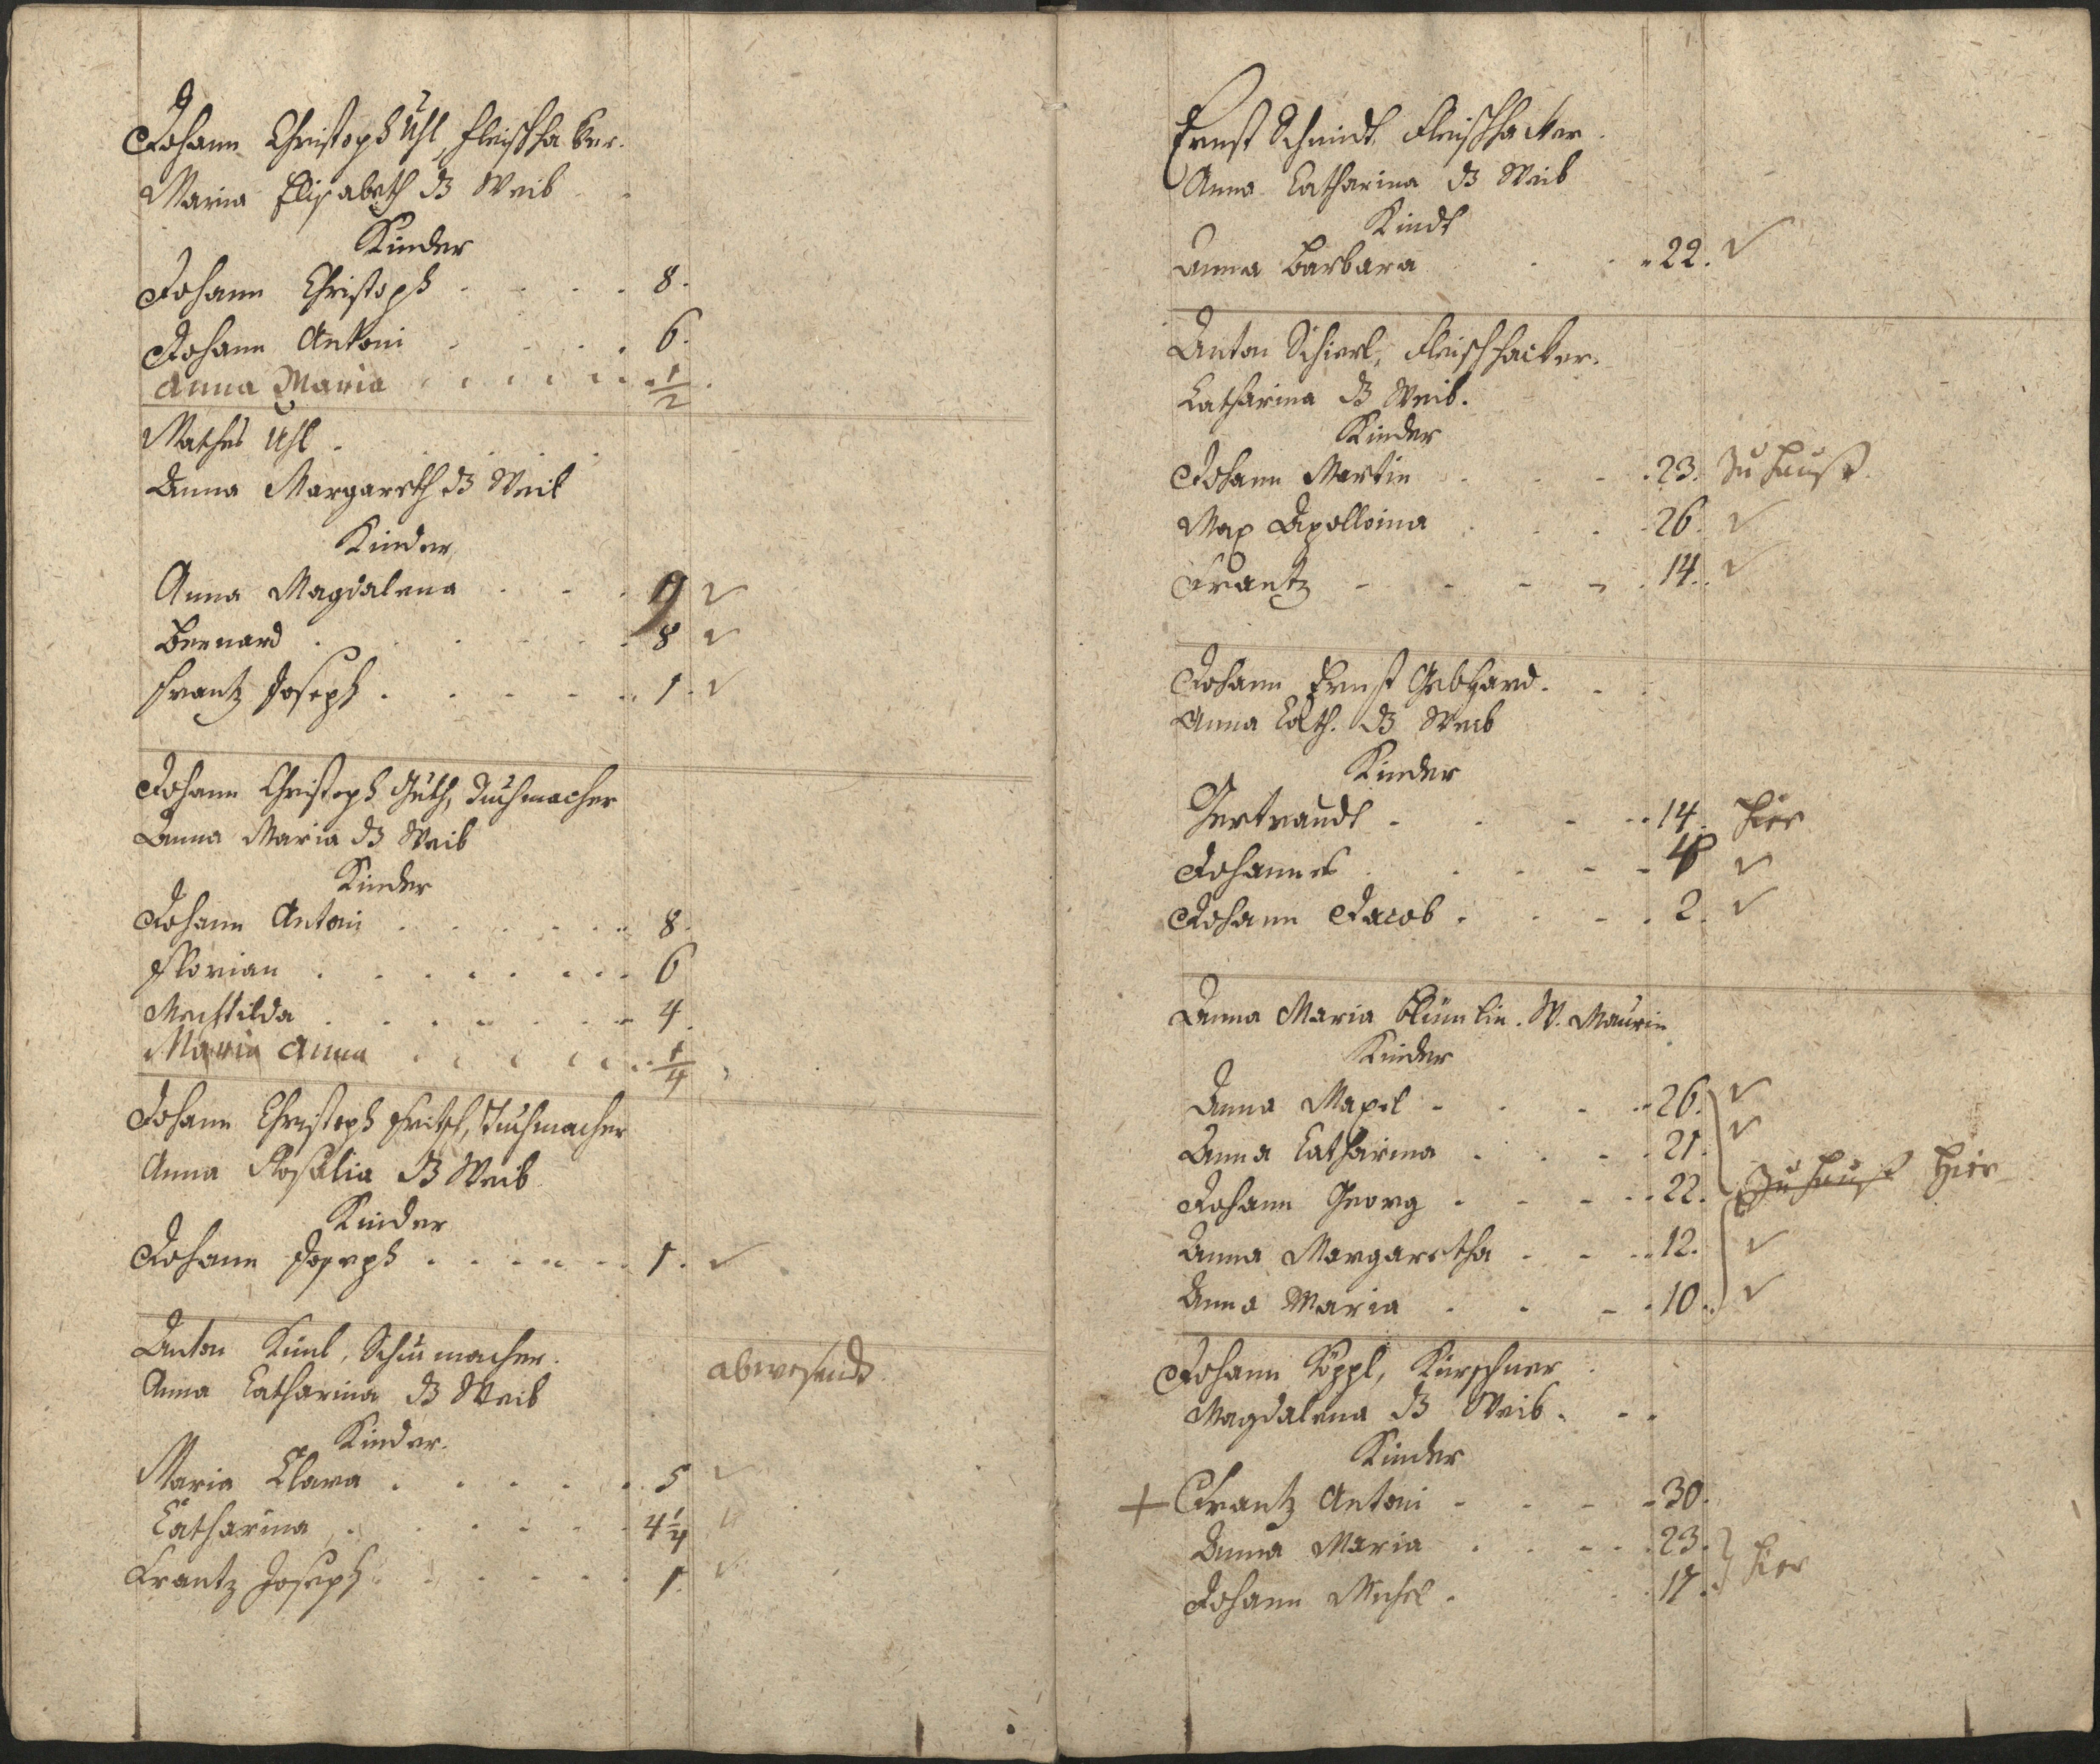 Johann Christoph Uhl, Fleischhaker.
Maria Elisabeth ds Weib
Kinder
Johann Christoph . . . . 8.
Johann Antoni . . . . 6.
Anna Maria . . . . . . 1/2.
Mathes Uhl .
Anna Margareth ds Weib
Kinder
Anna Magdalena . . . 9 ✓
Bernard . . . . . 8 ✓
Frantz Joseph . . . . . 1. ✓
Johann Christoph Guth, Tuchmacher
Anna Maria ds Weib
Kinder
Johann Antoni . . . . . 8.
Florian . . . . . . . 6
Mechtilda . . . . . . 4.
Maria Anna . . . . . . 1/4
Johann Christoph Fritsch, Tuchmacher
Anna Rosalia ds Weib
Kinder
Johann Joseph . . . . . 1. ✓
Anton Kunl, Schumacher.
Anna Catharina ds Weib abwesendt
Kinder.
Maria Clara . . . . . 5 ✓
Catharina . . . . . 4 1/4 ✓
Frantz Joseph . . . . . 1. ✓
Ernst Schmidt, Fleischhacker.
Anna Catharina ds Weib
Kindt
Anna Barbara . . . 22. ✓
Anton Schierl, Fleischhacker.
Catharina ds Weib.
Kinder
Johann Martin . . . 23. Zu Hauß
Max Apolloina . . . 26. ✓
Frantz . . . . . 14. ✓
Johann Ernst Gebhard. . .
Anna Cath. ds Weib
Kinder
Gertraudt . . . . 14. Hier
Johannes . . . . ✓
Johann Jacob . . . . 2. ✓
Anna Maria Blümlin. W. Maurin
Kinder
Anna . . . . 26. ✓
Anna Catharina . . . . 21. ✓
Johann Georg . . . . 22. Zu Hauß Hier
Anna Margaretha . . . 12. ✓
Anna Maria . . . . 10. ✓
Johann Köppl, Kürschner .
Magdalena ds Weib. . .
Kinder
+ Frantz Antoni . . . . 30.
Anna Maria . . . . 23.
Johann Michel . . . 17. } hier